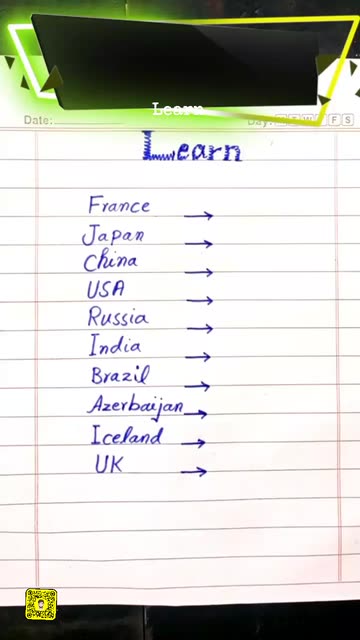 Learn
Date: Day: M T W T F S
Learn
France →
Japan →
China →
USA →
Russia →
India →
Brazil →
Azerbaijan →
Iceland →
UK →